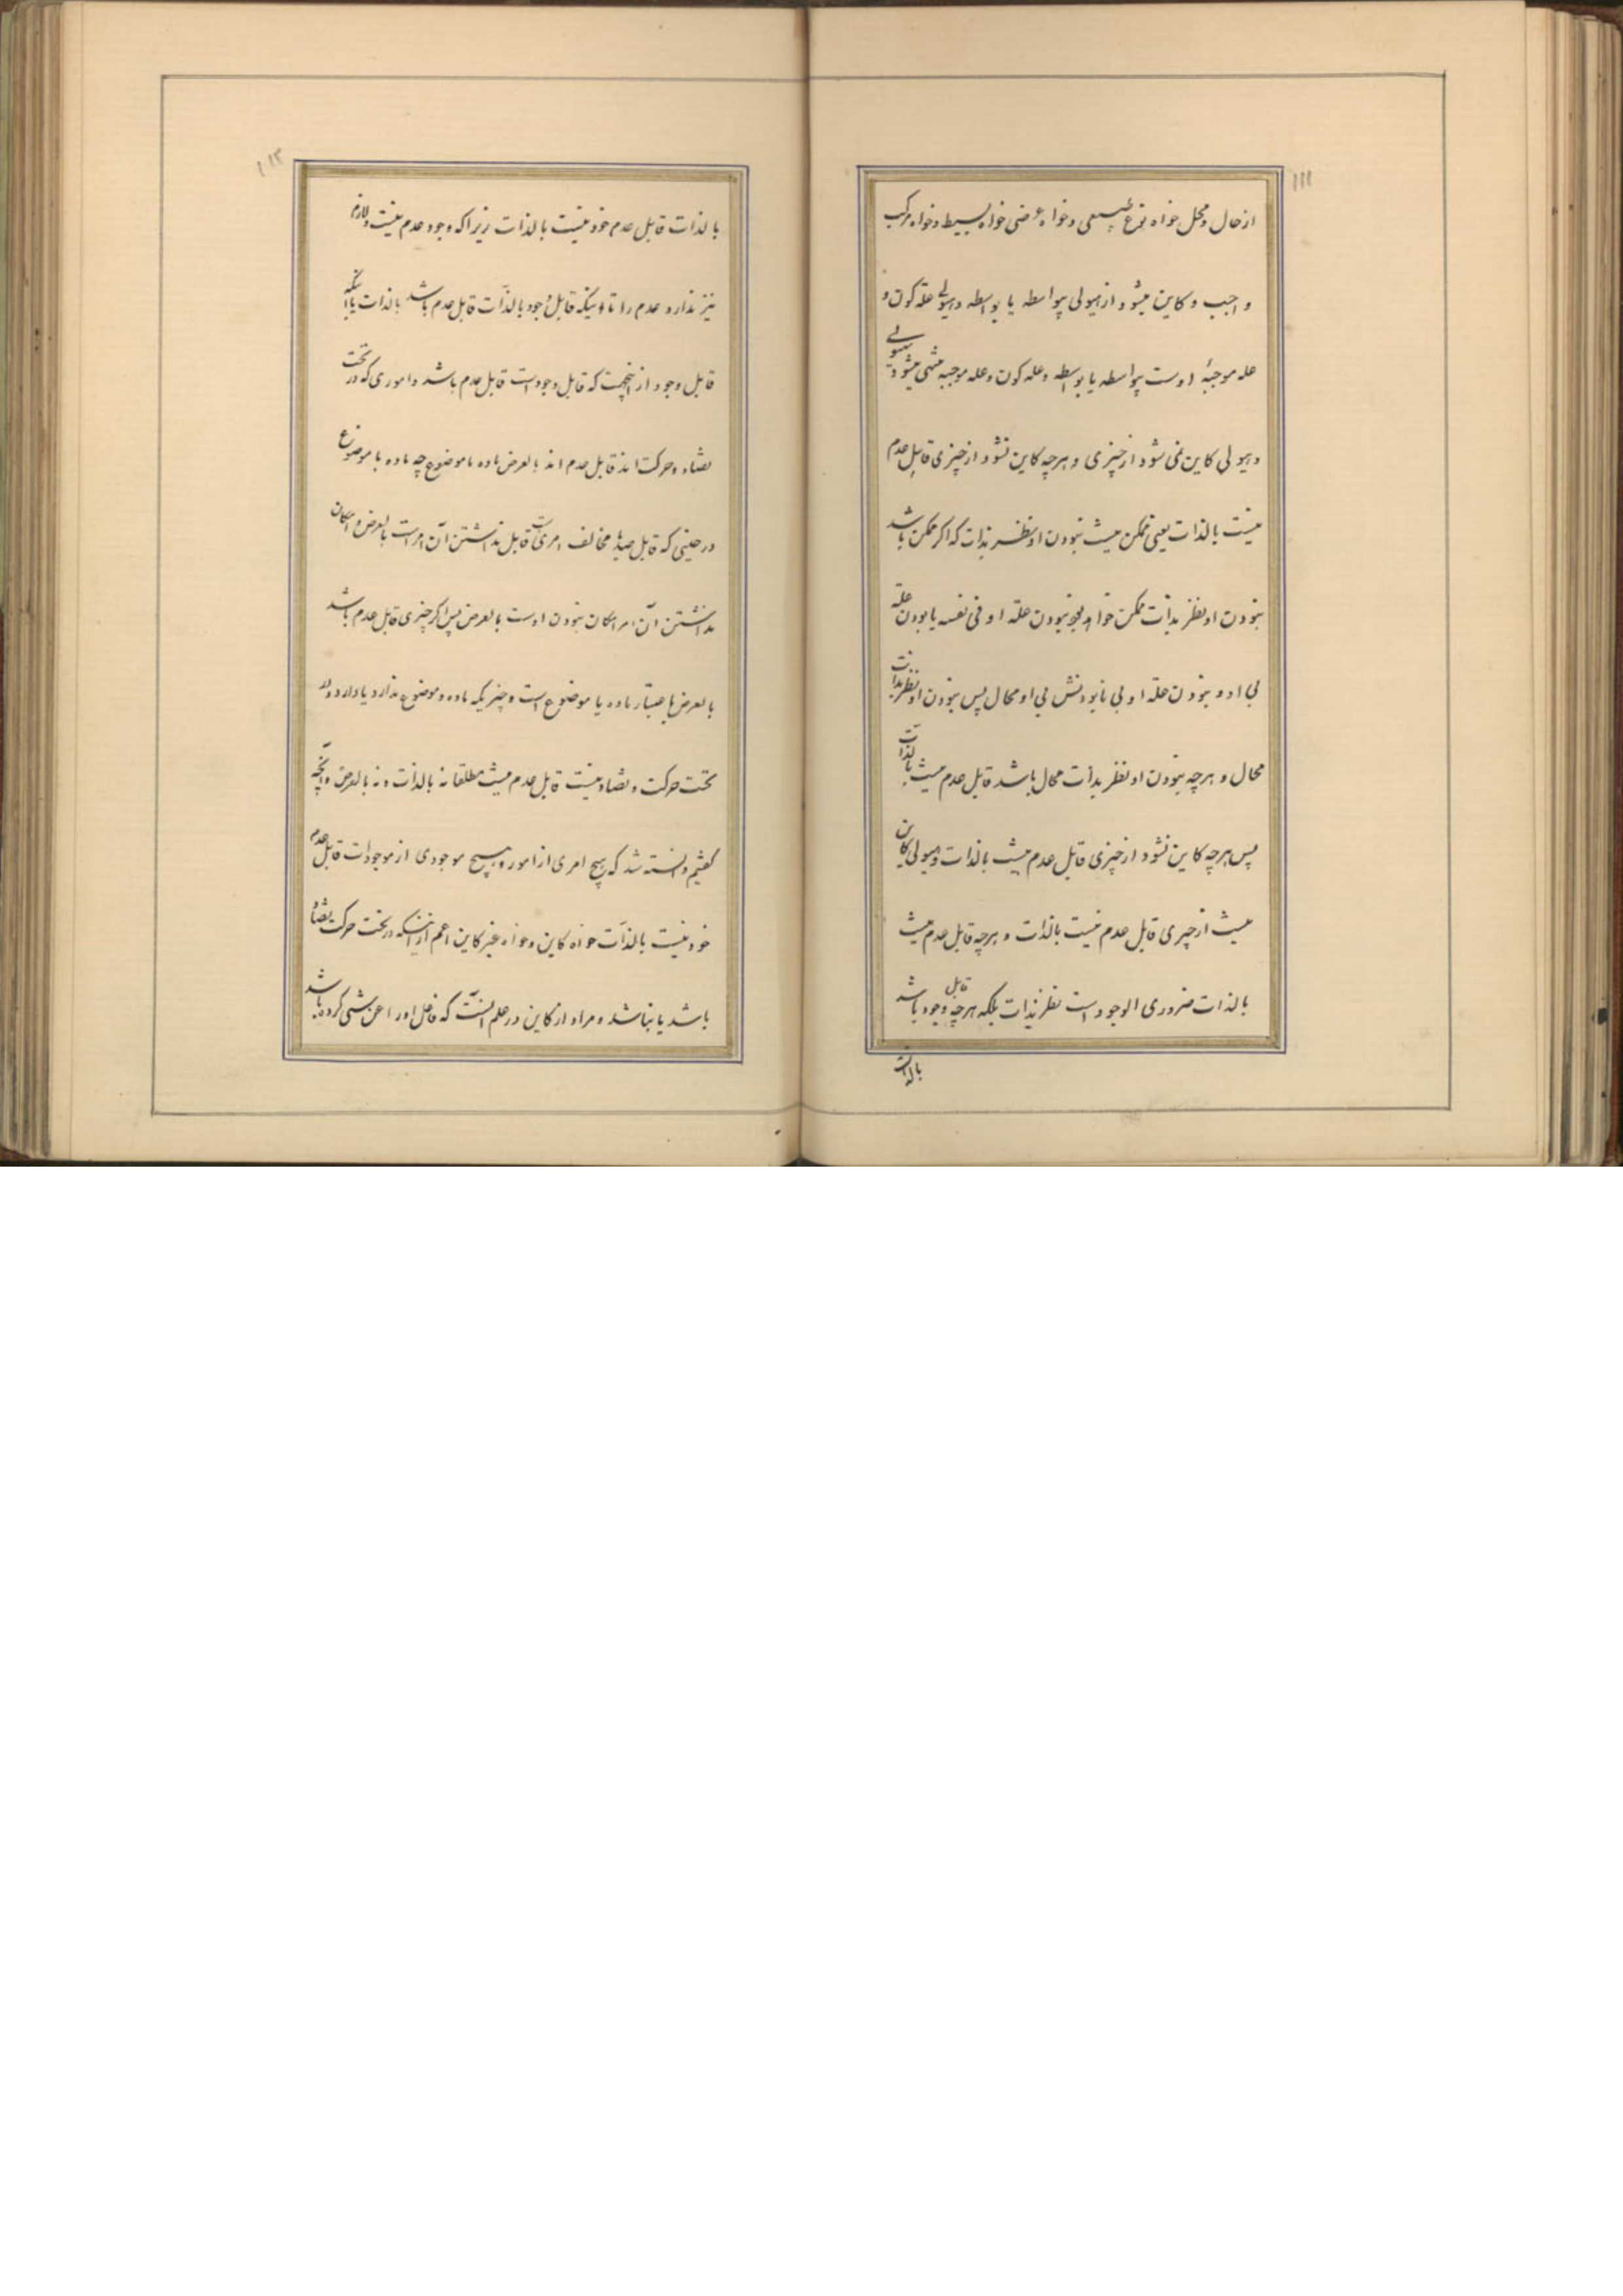 ۱۱۱
از حال و محل خواه نوع طبیعی و خواه عرضی خواه بسیط و خواه مرکب
واجب و کاین میشود از هیولی بیواسطه یا بواسطه و هیولی علّة کون و
علّه موجبهٔ اوست بیواسطه یا بواسطه و علّه کون و علّه موجبه منتهی میشود بهیولی
و هیولی کاین نمی شود از چیزی و هرچه کاین نشود از چیزی قابل عدم
نیست بالذات یعنی ممکن نیست نبودن او نظر بذات که اگر ممکن باشد
نبودن او نظر بذات ممکن خواهد بود نبودن علّة او فی نفسه یا بودن علّة
بی او و نبودن علّة او بی نابودنش بی او محال پس نبودن او نظر بذات
محال و هرچه نبودن او نظر بذات محال باشد قابل عدم نیست بالذات
پس هرچه کاین نشود از چیزی قابل عدم نیست بالذات و هیولی کاین
نیست از چیزی قابل عدم نیست بالذات و هرچه قابل عدم نیست
بالذات ضروری الوجود است نظر بذات بلکه هرچه قابل وجود باشد
بالذات
۱۱۲
بالذات قابل عدم خود نیست بالذات زیرا که وجود عدم نیست و لازم
نیز ندارد عدم را تا اینکه قابل وجود بالذّات قابل عدم باشد بالذات یا اینکه
قابل وجود از اینجهت که قابل وجود است قابل عدم باشد و اموری که در تحت
تضاد و حرکت اند قابل عدم اند بالعرض ماده یا موضوع چه ماده یا موضوع
در حینی که قابل مخالف امریست قابل نداشتن آن امر است بالعرض و امکان
نداشتن آن امر امکان نبودن اوست بالعرض پس اگر چیزی قابل عدم باشد
بالعرض باعتبار ماده یا موضوع است و چیزیکه ماده و موضوع ندارد یا دارد و در
تحت حرکت و تضاد نیست قابل عدم نیست مطلقا نه بالذات و نه بالعرض و آنچه
گفتیم دانسته شد که هیچ امری از امور و هیچ موجودی از موجودات قابل عدم
خود نیست بالذّات خواه کاین و خواه غیر کاین اعم از اینکه در تحت حرکت و تضاد
باشد یا نباشد و مراد از کاین در علم آنست که فاعل او را عن شئ کرده باشد